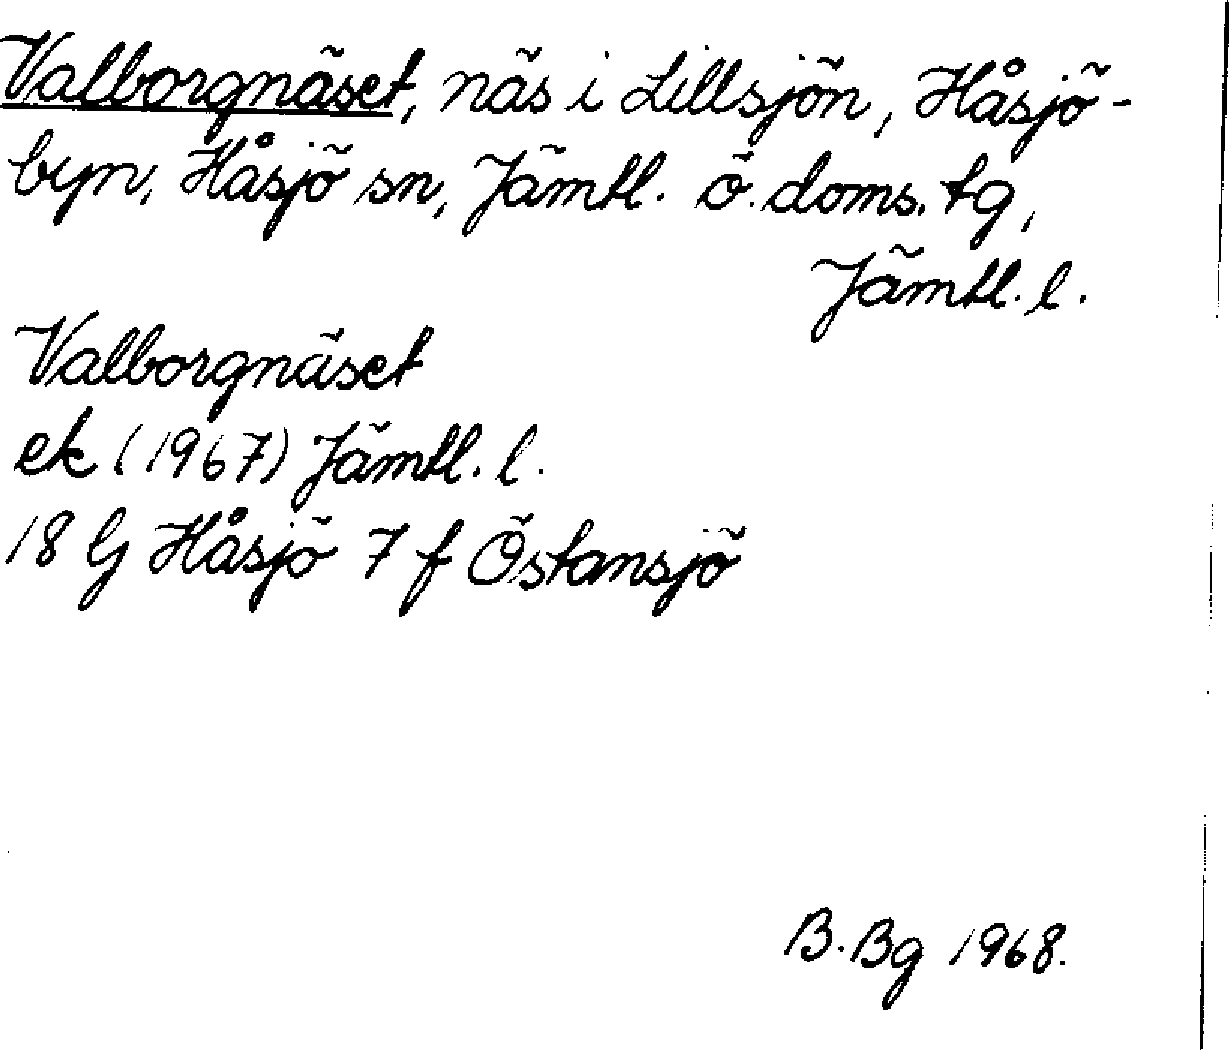 Valborgnäset, näs i Lillsjön, Håsjö-
byn, Håsjö sn, Jämtl. ö. doms. tg,
Jämtl. l.
Valborgnäset
ek (1967) Jämtl. l.
18 G Håsjö 7 f Östansjö
B. Bg 1968.